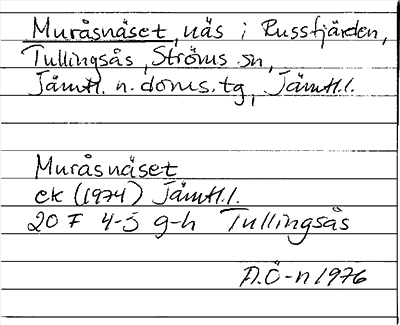 Muråsnäset, näs i Russfjärden,
Tullingsås, Ströms sn,
Jämtl. n. doms. tg, Jämtl. l.
Muråsnäset
ek (1974) Jämtl. l.
20 F 4-5 g-h Tullingsås
A.Ö-n 1976